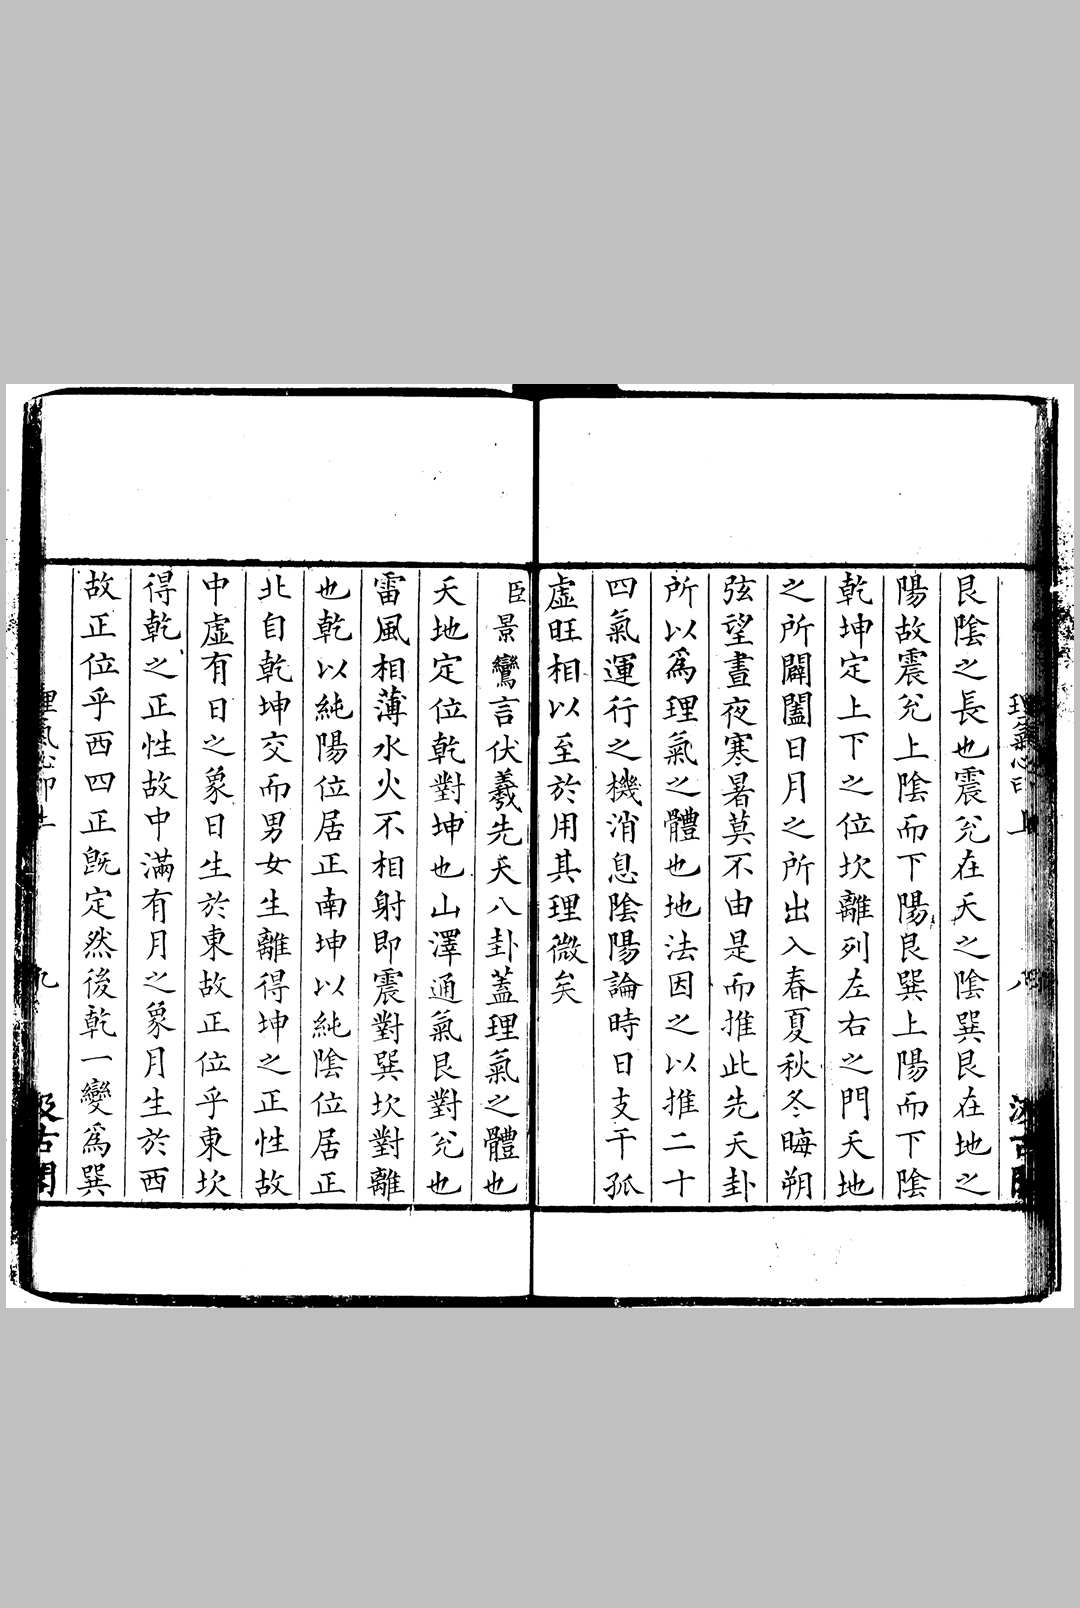 理氣心印 上 八 汲古閣
艮陰之長也震兊在天之陰巽艮在地之
陽故震兊上陰而下陽艮巽上陽而下陰
乾坤定上下之位坎離列左右之門天地
之所闢闔日月之所出入春夏秋冬晦朔
弦望晝夜寒暑莫不由是而推此先天卦
所以爲理氣之體也地法因之以推二十
四氣運行之機消息陰陽論時日支干孤
虛旺相以至於用其理微矣
臣景鸞言伏羲先天八卦蓋理氣之體也
天地定位乾對坤也山澤通氣艮對兊也
雷風相薄水火不相射即震對巽坎對離
也乾以純陽位居正南坤以純陰位居正
北自乾坤交而男女生離得坤之正性故
中虛有日之象日生於東故正位乎東坎
得乾之正性故中滿有月之象月生於西
故正位乎西四正旣定然後乾一變爲巽
理氣心印 上 九 汲古閣